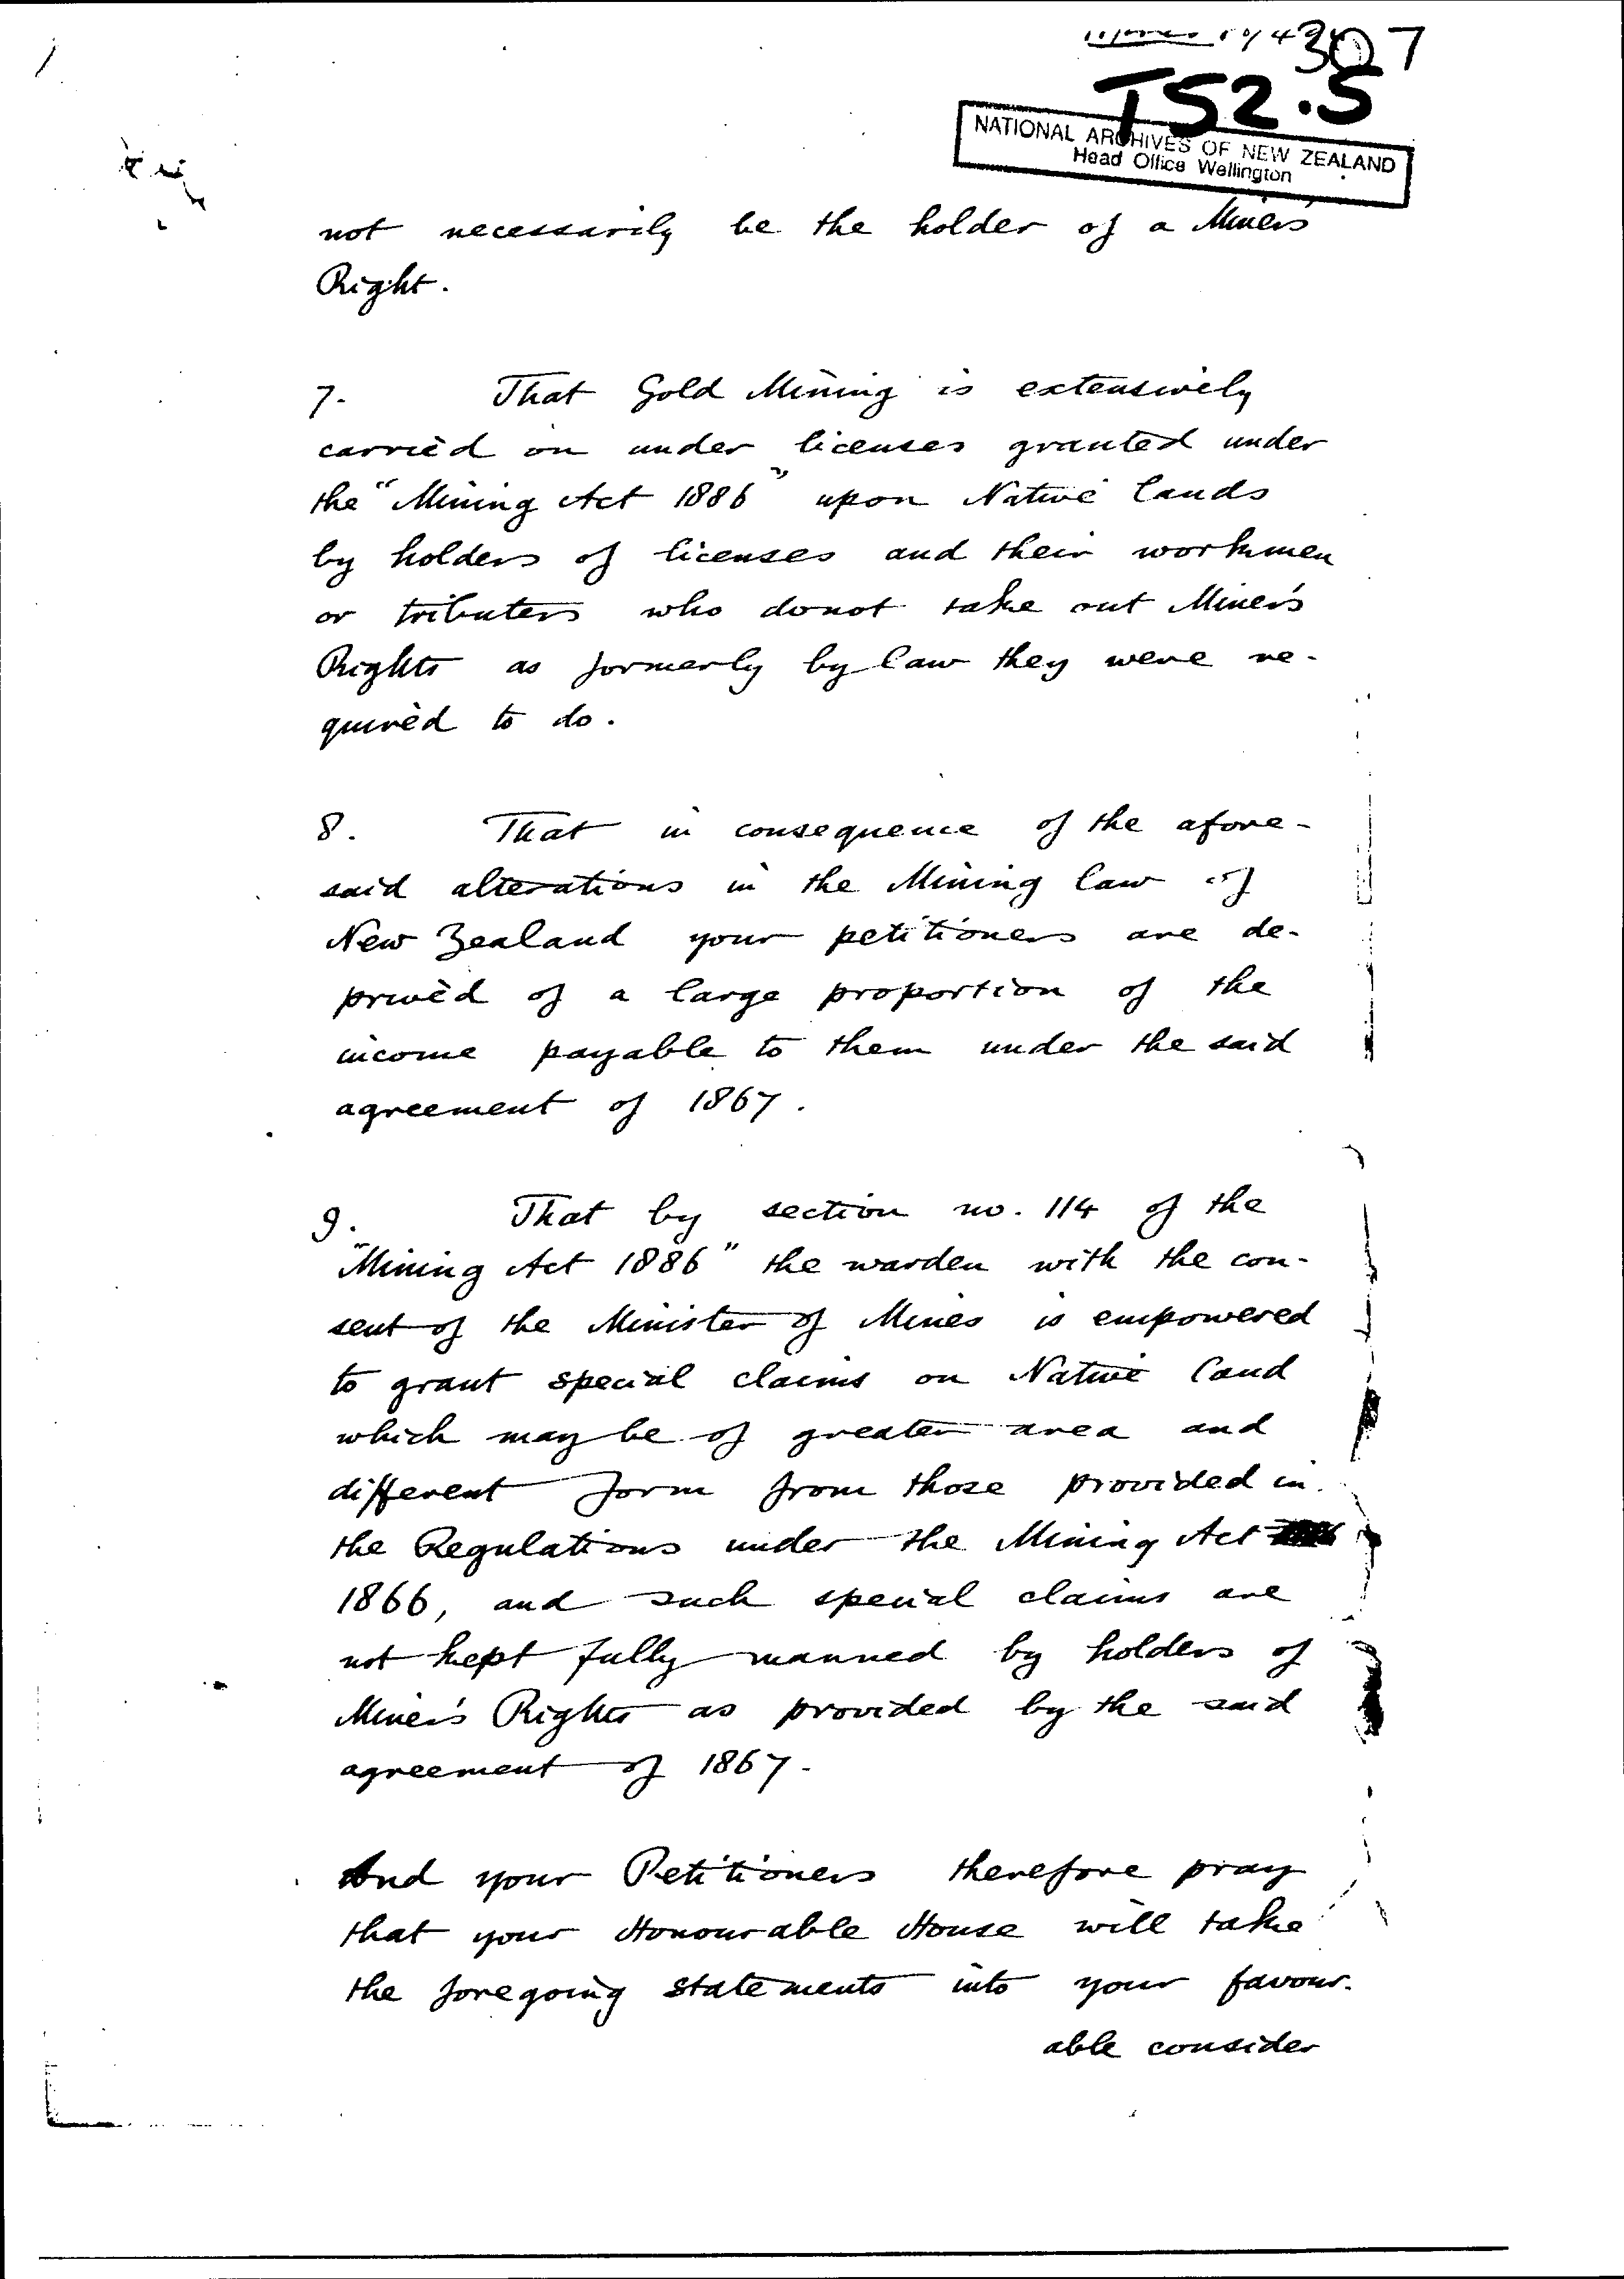 307
T52.5
NATIONAL ARCHIVES OF NEW ZEALAND
Head Office Wellington
not necessarily be the holder of a Miner's
Right.
7. That Gold Mining is extensively
carried on under licenses granted under
the "Mining Act 1886" upon Native lands
by holders of licenses and their workmen
or tributers who do not take out Miner's
Rights as formerly by law they were re-
quired to do.
8. That in consequence of the afore-
said alterations in the Mining law of
New Zealand your petitioners are de-
prived of a large proportion of the
income payable to them under the said
agreement of 1867.
9. That by section no. 114 of the
"Mining Act 1886" the warden with the con-
sent of the Minister of Mines is empowered
to grant special claims on Native land
which may be of greater area and
different form from those provided in
the Regulations under the Mining Act
1866, and such special claims are
not kept fully manned by holders of
Miner's Rights as provided by the said
agreement of 1867.
And your Petitioners therefore pray
that your Honourable House will take
the foregoing statements into your favour-
able consider